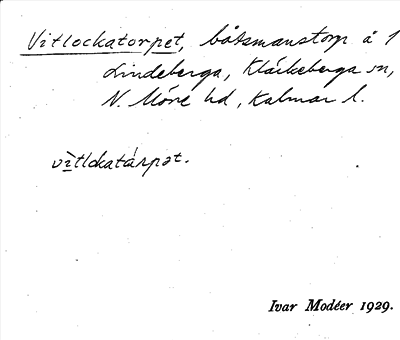 Vitlockatorpet, båtsmanstorp å 1
Lindeberga, Kläckeberga sn,
N. Möre hd, Kalmar l.
vìtlokatárpət.
Ivar Modéer 1929.